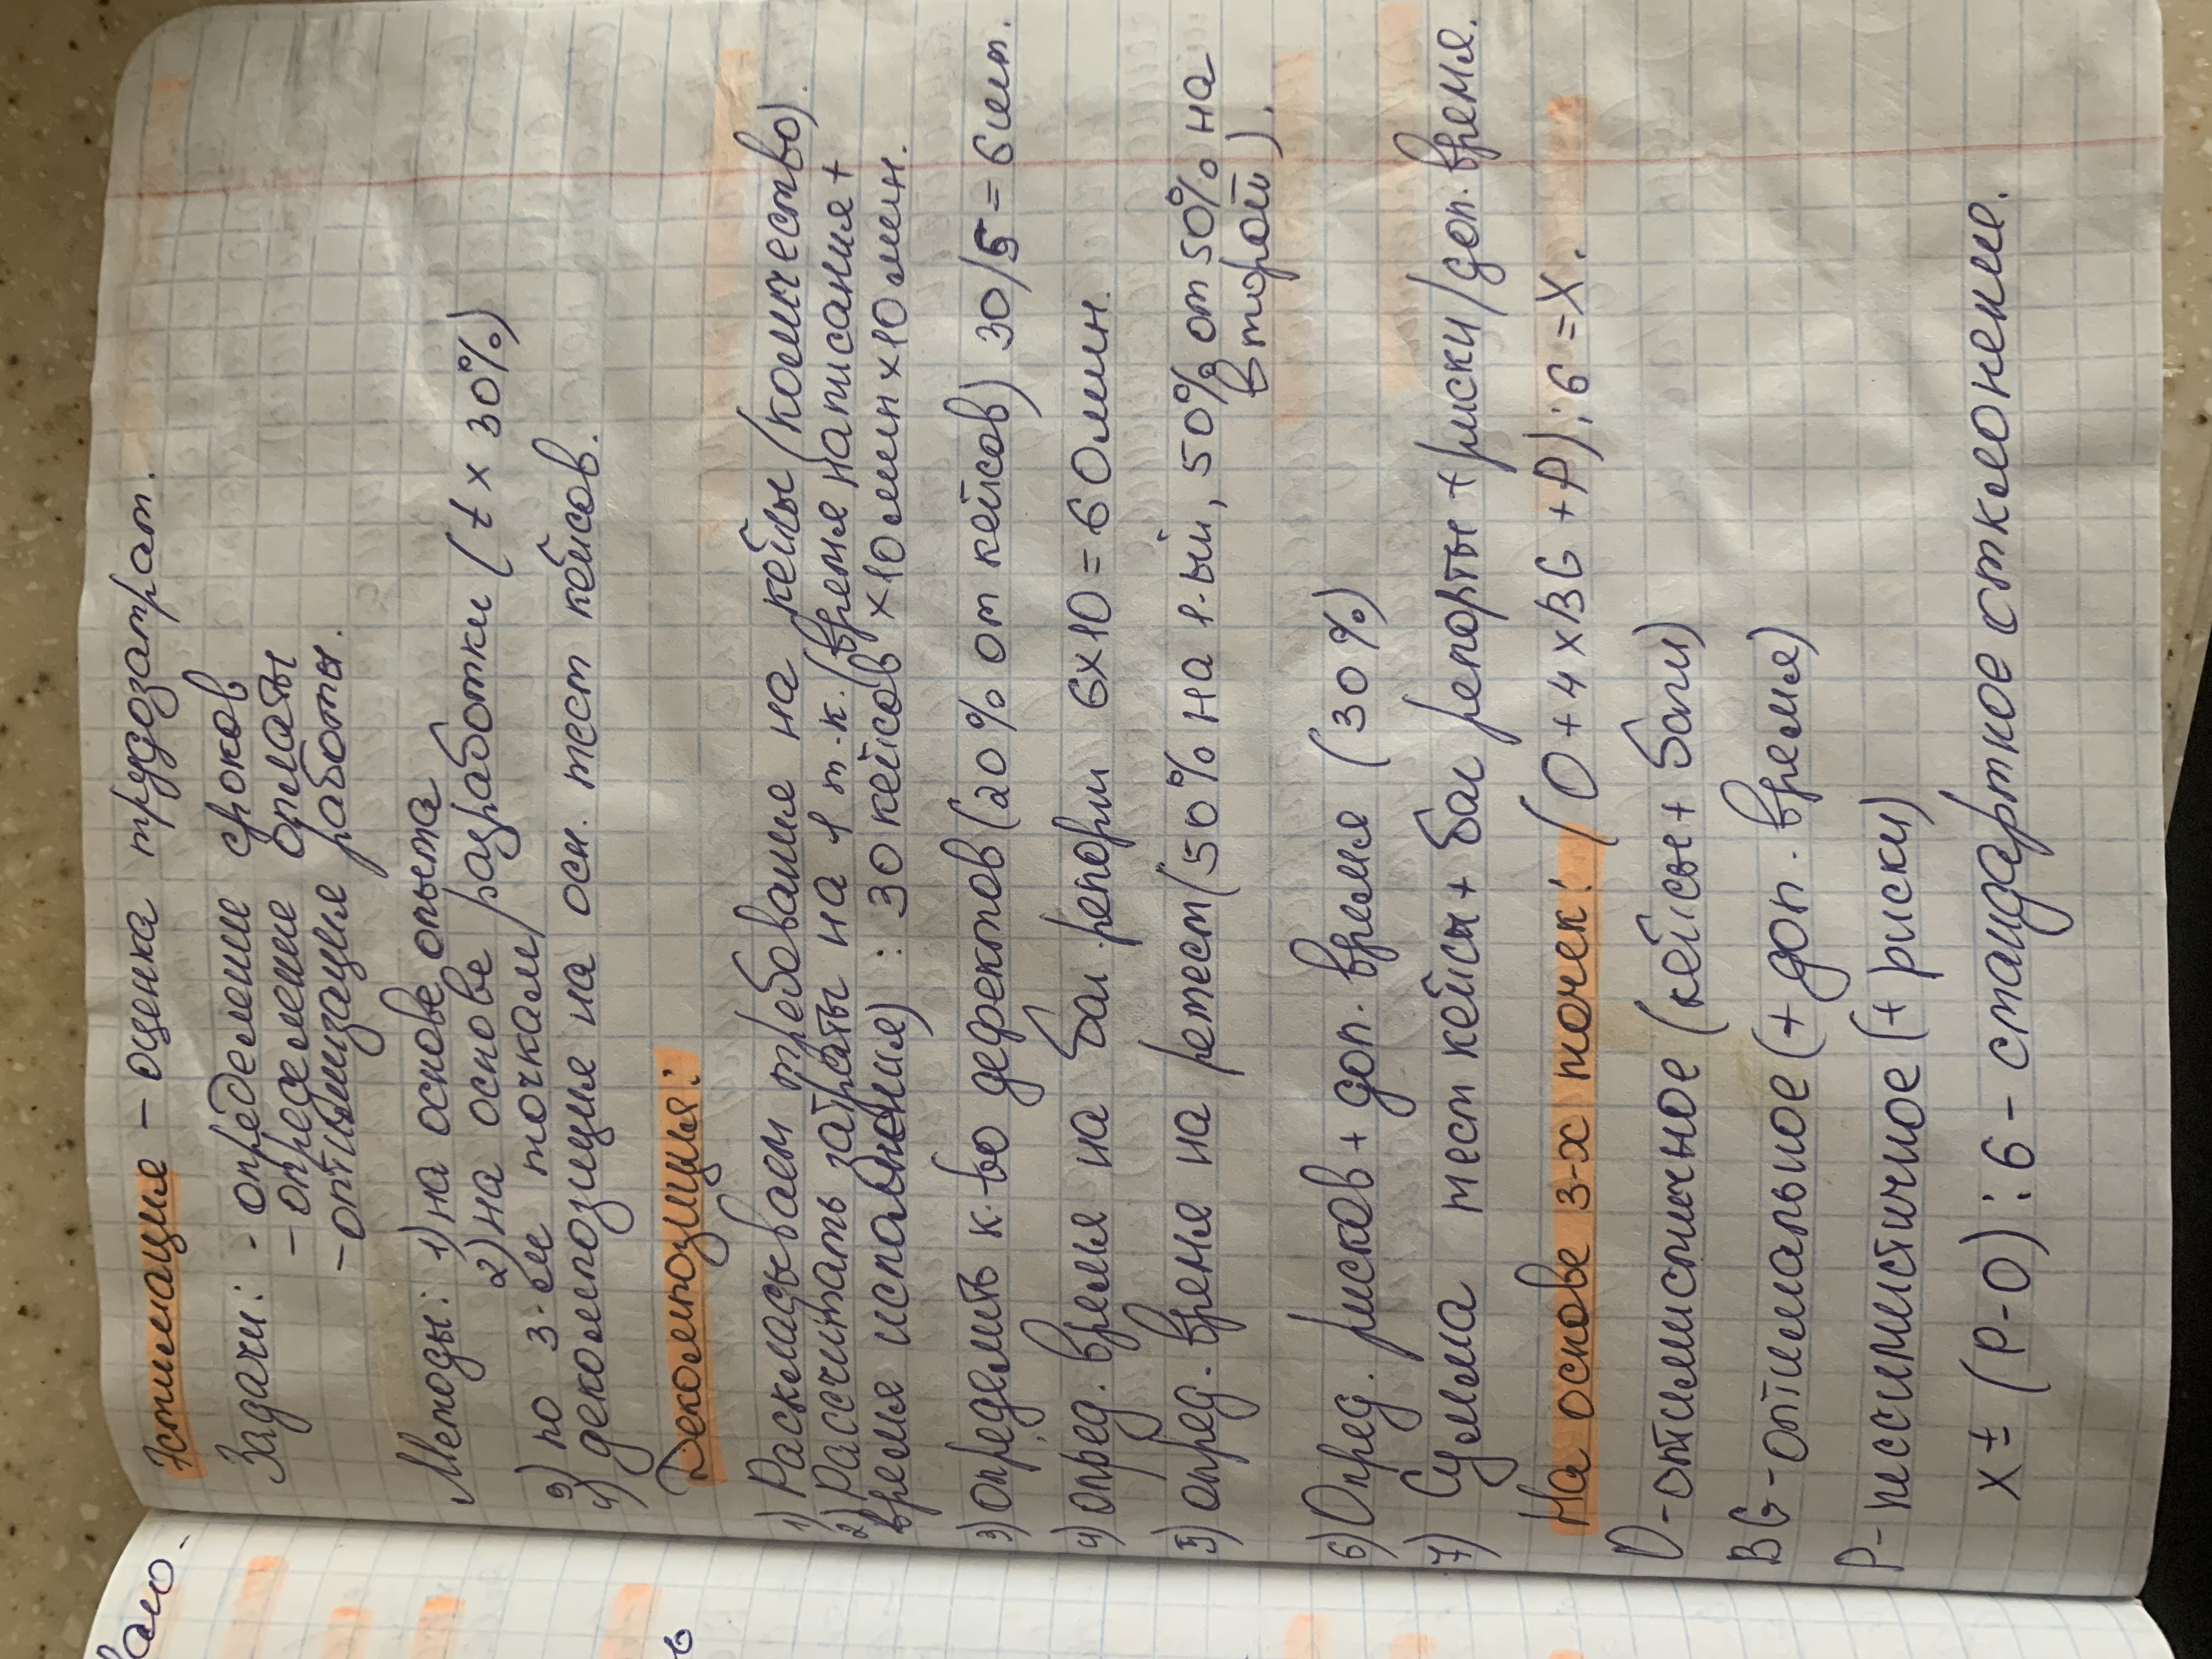 вано.
Эстимация – оценка трудозатрат.
Задачи: - определение сроков
- определение оплаты
- оптимизация работы.
Методы: 1) на основе опыта
2) на основе разработки (t x 30%)
3) по 3-м точкам
4) декомпозиция на осн. тест кейсов.
Декомпозиция:
1) Раскладываем требования на кейсы (количество).
2) Рассчитать затраты на 1 т.к. (время написания +
время исполнения) : 30 кейсов x 10 мин x 10 мин.
3) определить к-во дефектов (20% от кейсов) 30/5 = 6 шт.
4) опред. время на баг репорты 6x10 = 60 мин.
5) опред. время на ретест (50% на 1-ый, 50% от 50% на
второй).
6) Опред. рисков + доп. время (30%)
7) Сумма тест кейсы + баг репорты + риски/доп. время.
На основе 3-х точек: (О + 4 x BG + P) : 6 = X.
О - оптимистичное (кейсы + баги)
BG - оптимальное (+ доп. время)
P - пессимистичное (+ риски)
x ± (P-O) : 6 – стандартное отклонение.